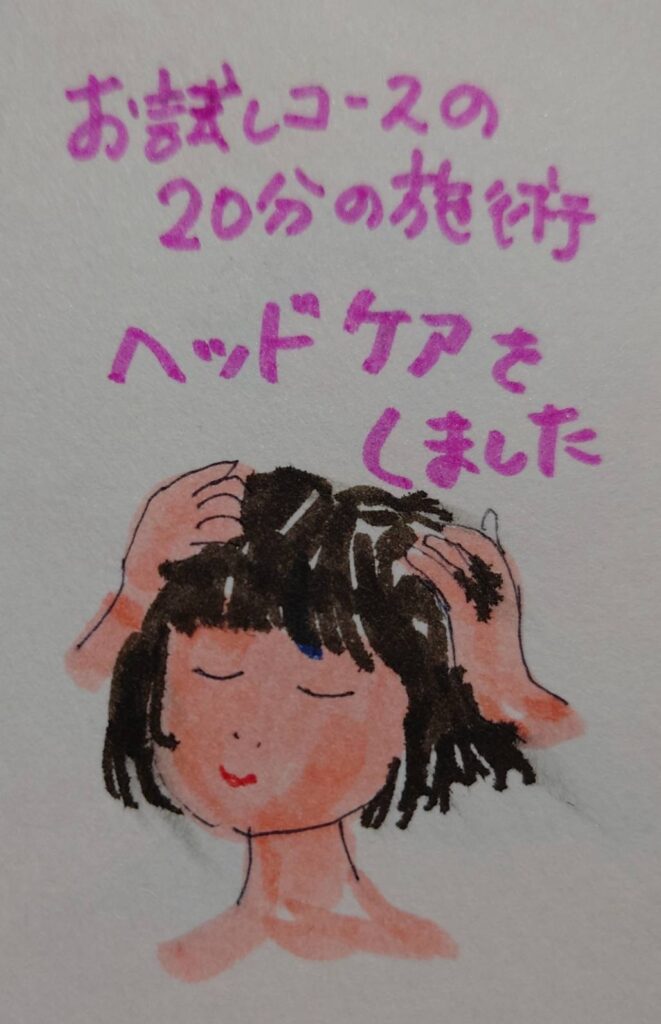 お試しコースの
20分の施術
ヘッドケアを
しました